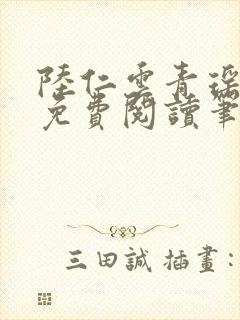 陸仁雲青瑶
免費閱讀筆
三田誠 插畫：